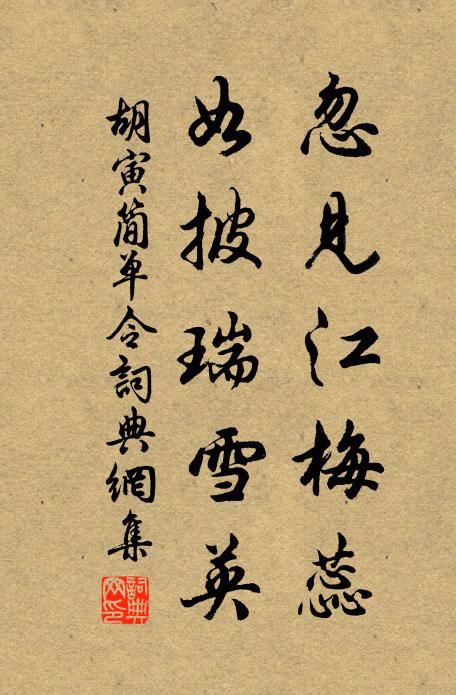 忽見江梅蕊
如披瑞雪英
胡寅簡單令詞典網集
詞典網印